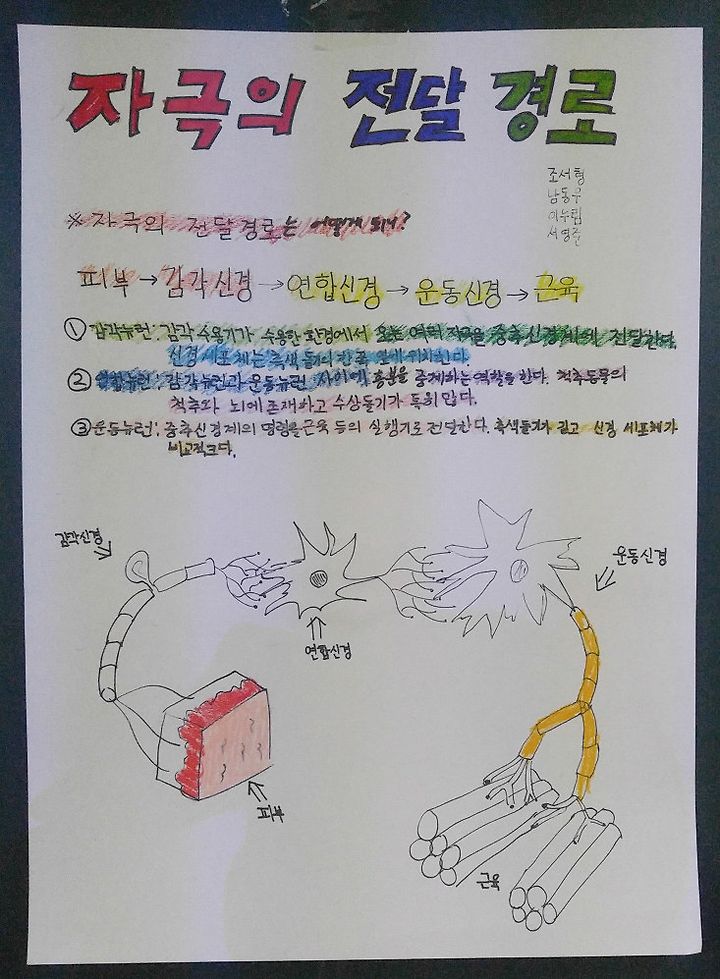 자극의 전달 경로
조서형
남동우
이누림
서영준
※ 자극의 전달경로는 어떻게 되나?
피부 → 감각신경 → 연합신경 → 운동신경 → 근육
① 감각뉴런: 감각 수용기가 수용한 환경에서 오는 여러 자극을 중추신경계에 전달한다.
신경세포체는 축색돌기 한쪽 옆에 위치한다.
② 연합뉴런: 감각뉴런과 운동뉴런 사이에 흥분을 중계하는 역할을 한다. 척추동물의
척추와 뇌에 존재하고 수상돌기가 특히 많다.
③ 운동뉴런: 중추신경계의 명령을 근육 등의 실행기로 전달한다. 축색돌기가 길고 신경 세포체가
비교적크다.
감각신경
운동신경
연합신경
피부
근육